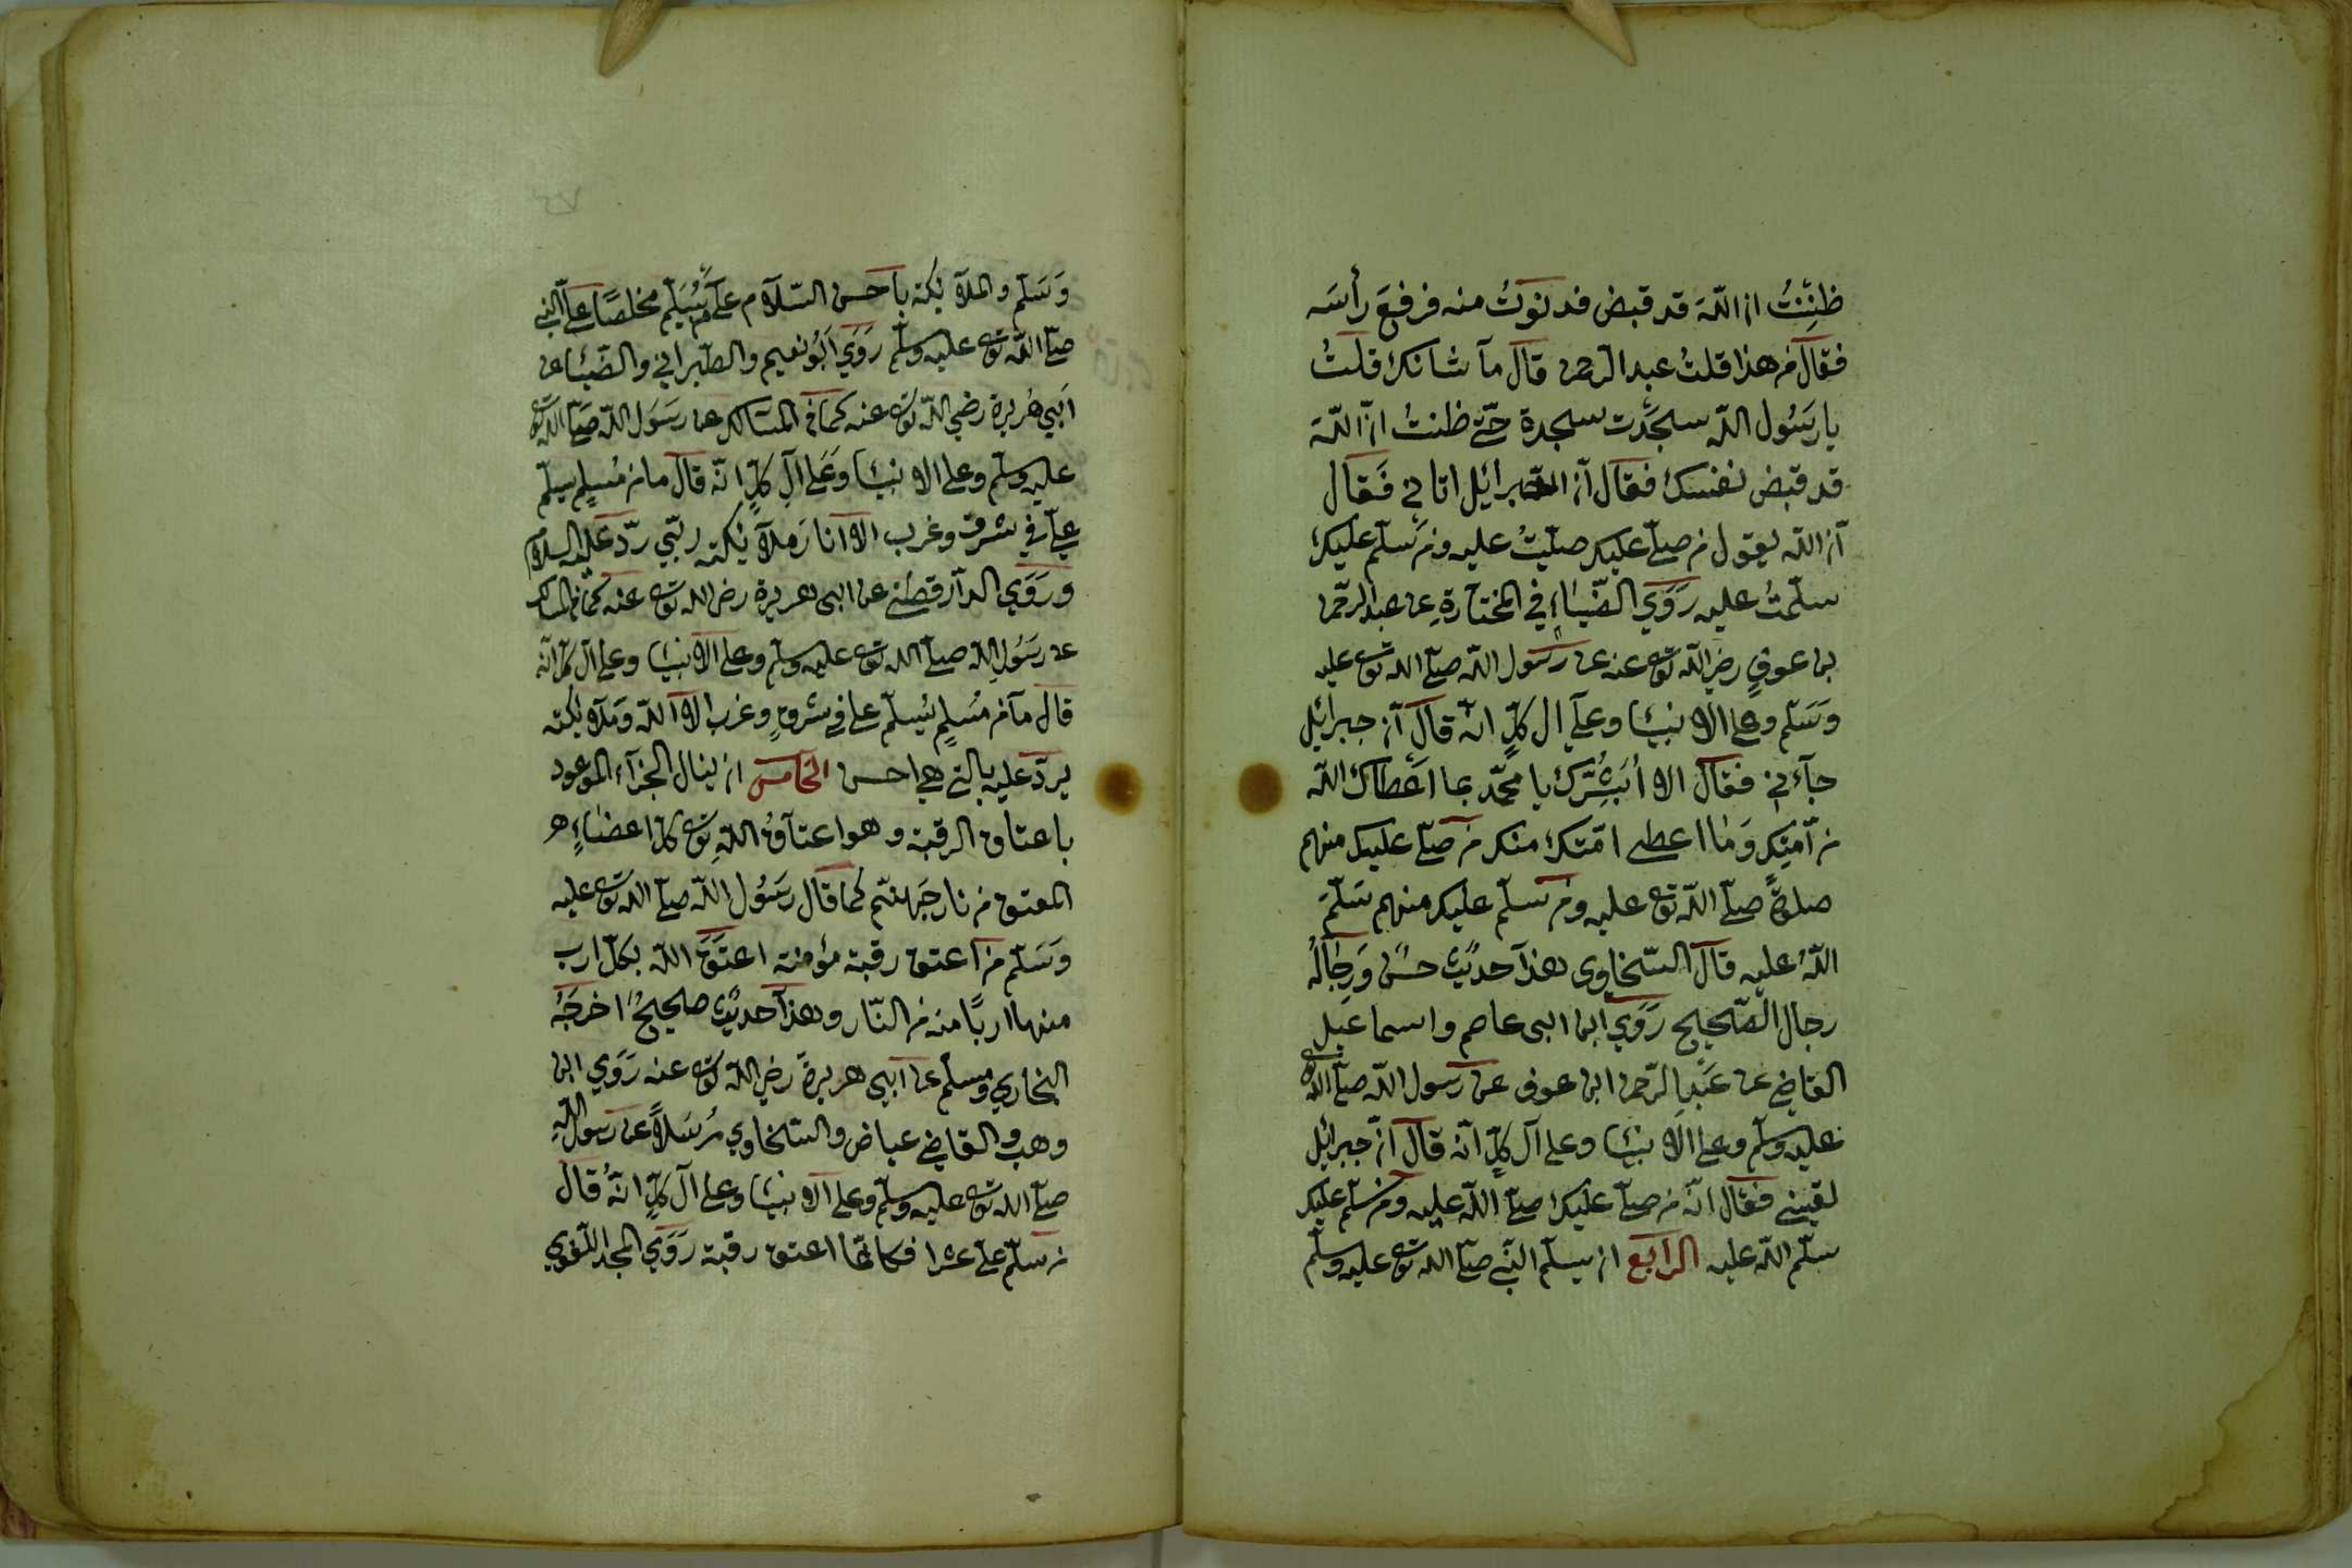 ظننتُ ان اللّهَ قد قبض فدنوتُ منه فرفعَ رأسَه
فقال من هذا قلتُ عبد الرحمن قال مآ شانك قلتُ
يا رسُول الله سجدتَ سجدة حتّى ظننتُ انّ اللّه
قد قبض نفسك فقال انّ جبرائيل اتاني فَقال
انّ الله يقول من صلّى عليك صلّيتُ عليه ومن سلّم عليك
سلّمتُ عليه رَوَي الضّياءِ في المختارةِ عن عبد الرحمن
بن عوفٍ رضي اللّه تع عنه عن رسُول اللّه صلّى الله تع عليه
وَسَلّم وعلى الانبيا وعلى ال كلٍّ انّه قال انّ جبرائيل
جآءني فقال الا اُبَشِّرُك يا محمّد بما اَعطاك اللّه
من اُمّتِك وَمَا اعطى امّتك منك من صلّى عليك منهم
صلوةً صلّى اللّه تع عليه ومن سلّم عليك منهم سَلّمَ
اللّهُ عليه قال السّخاوى هذا حديثٌ حسنٌ وَرِجَالُهُ
رجال الصّحيح رَوَي ابن ابى عاصم واسماعيل
القاضي عن عَبدِ الرّحمن ابن عوف عن رسول اللّه صلّى اللّه تع
عليه وسلّم وعلى الانبيا وعلى آل كلٍّ انّه قال انّ جبرائيل
لقيني فقال انّه من صلّى عليك صلّى اللّه عليه ومن سلّم عليك
سلّم اللّه عليه الرابع ان يسلّم النّبي صلّى الله تع عليه وسلّم
وَسَلّم والملائكته باَحسن السّلام على من يُسَلّم مخلصًا على النّبي
صلّى اللّه تع عليه وسلّم رَوَي اَبُو نعيم والطّبراني والضّيا عن
اَبي هُريرة رضي اللّه تع عنه كما في المسَالك عن رسَول اللّه صَلّى الله تع
عليه وسلّم وعلى الانبيا وَعَلى الِ كلٍّ انّه قال ما من مُسلِمٍ يسلّم
علىّ في شرقٍ وغرب الا انا وَملائكته ربّي ردّ عليه السلام
ورَوَي الدّارقطني عن ابى هريرة رض الله تع عنه كما في المسالك
عن رسَول اللّه صلّى الله تع عليه وسلّم وعلى الانبيا وعلى ال كلٍّ انّه
قال مآ من مُسلِمٍ يُسلّم على في شرقٍ وغرب الا اللّه وَملائكته
يردّ عليه بالتي هي احسن الخامس ان ينال الجزآء الموعود
باعتاق الرقبة وهو اعتاقُ اللّهِ تع كلّ اعضاءِ
المعتق من نار جَهنّم كما قال رسَول اللّه صلّى الله تع عليه
وَسَلّم من اعتق رقبة مؤمنة اعتَقَ اللّه بكلّ ارب
منها اربًا منه من النّار وهذا حديثٌ صحيحٌ اخرجَهُ
البخاري ومسلّم عن اَبي هريرةَ رض اللّه تع عنه رَوَي ابن
وهب والقاضي عياض والسّخاوي مُرسَلًا عن رَسول اللّه
صلّى الله تع عليه وسلّم وعلى الانبيا وعلى آل كلٍّ انّهُ قال
من سلّم علىّ عشرا فكانّما اعتق رقبة رَوَي المجد اللّغوي